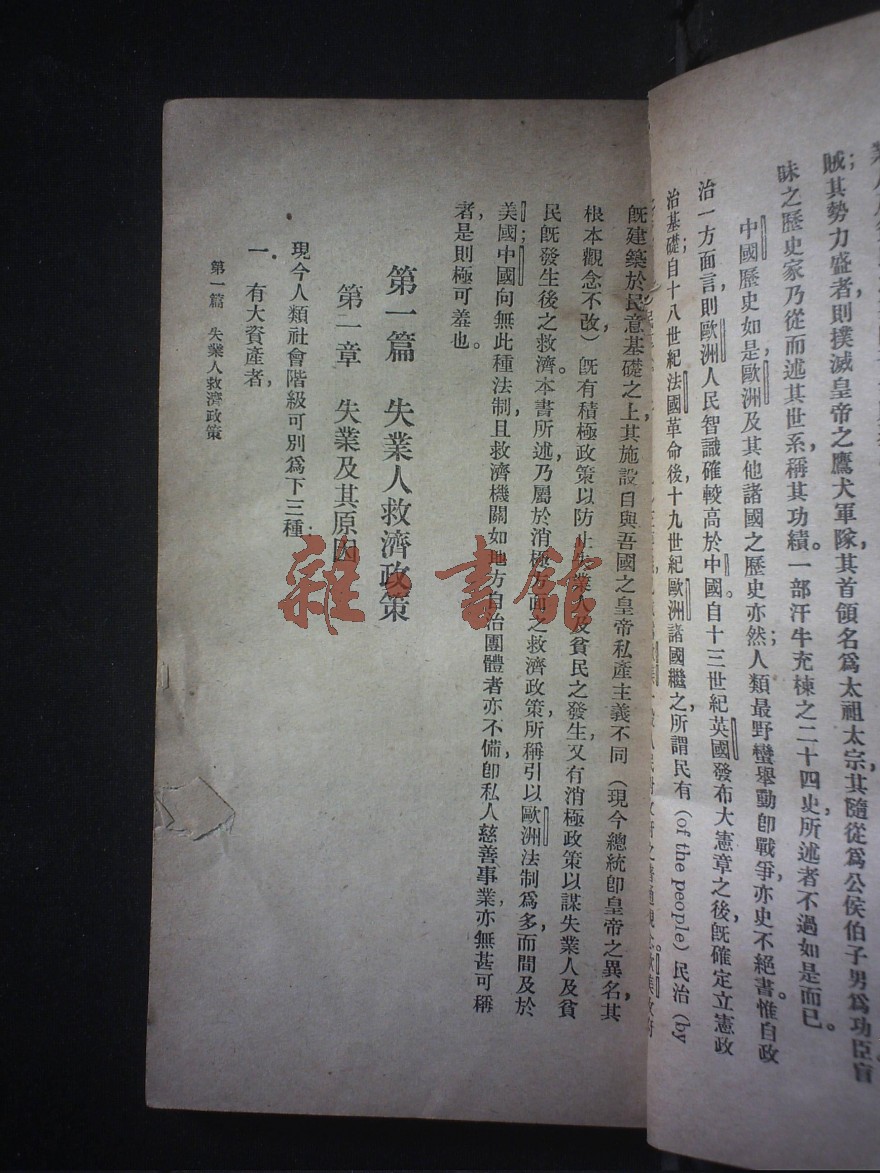 賊；其勢力盛者則撲滅皇帝之鷹犬軍隊，其首領名爲太祖太宗，其隨從爲公侯伯子男爲功臣，盲
昧之歷史家乃從而述其世系，稱其功績。一部汗牛充棟之二十四史，所述者不過如是而已。
中國歷史如是，歐洲及其他諸國之歷史亦然；人類最野蠻舉動即戰爭，亦史不絕書。惟自政
治一方面言，則歐洲人民智識確較高於中國。自十三世紀英國發布大憲章之後，既確定立憲政
治基礎；自十八世紀法國革命後，十九世紀歐洲諸國繼之，所謂民有 (of the people) 民治 (by
既建築於民意基礎之上，其施設自與吾國之皇帝私產主義不同（現今總統即皇帝之異名，其
根本觀念不改）既有積極政策以防止失業人及貧民之發生，又有消極政策以謀失業人及貧
民既發生後之救濟。本書所述，乃屬於消極方面之救濟政策，所稱引以歐洲法制爲多，而間及於
美國；中國向無此種法制，且救濟機關如地方自治團體者亦不備，即私人慈善事業，亦無甚可稱
者，是則極可羞也。
第一篇　失業人救濟政策
第一章　失業及其原因
現今人類社會階級可別爲下三種：
一．　有大資產者，
第一篇　失業人救濟政策
雜·書館